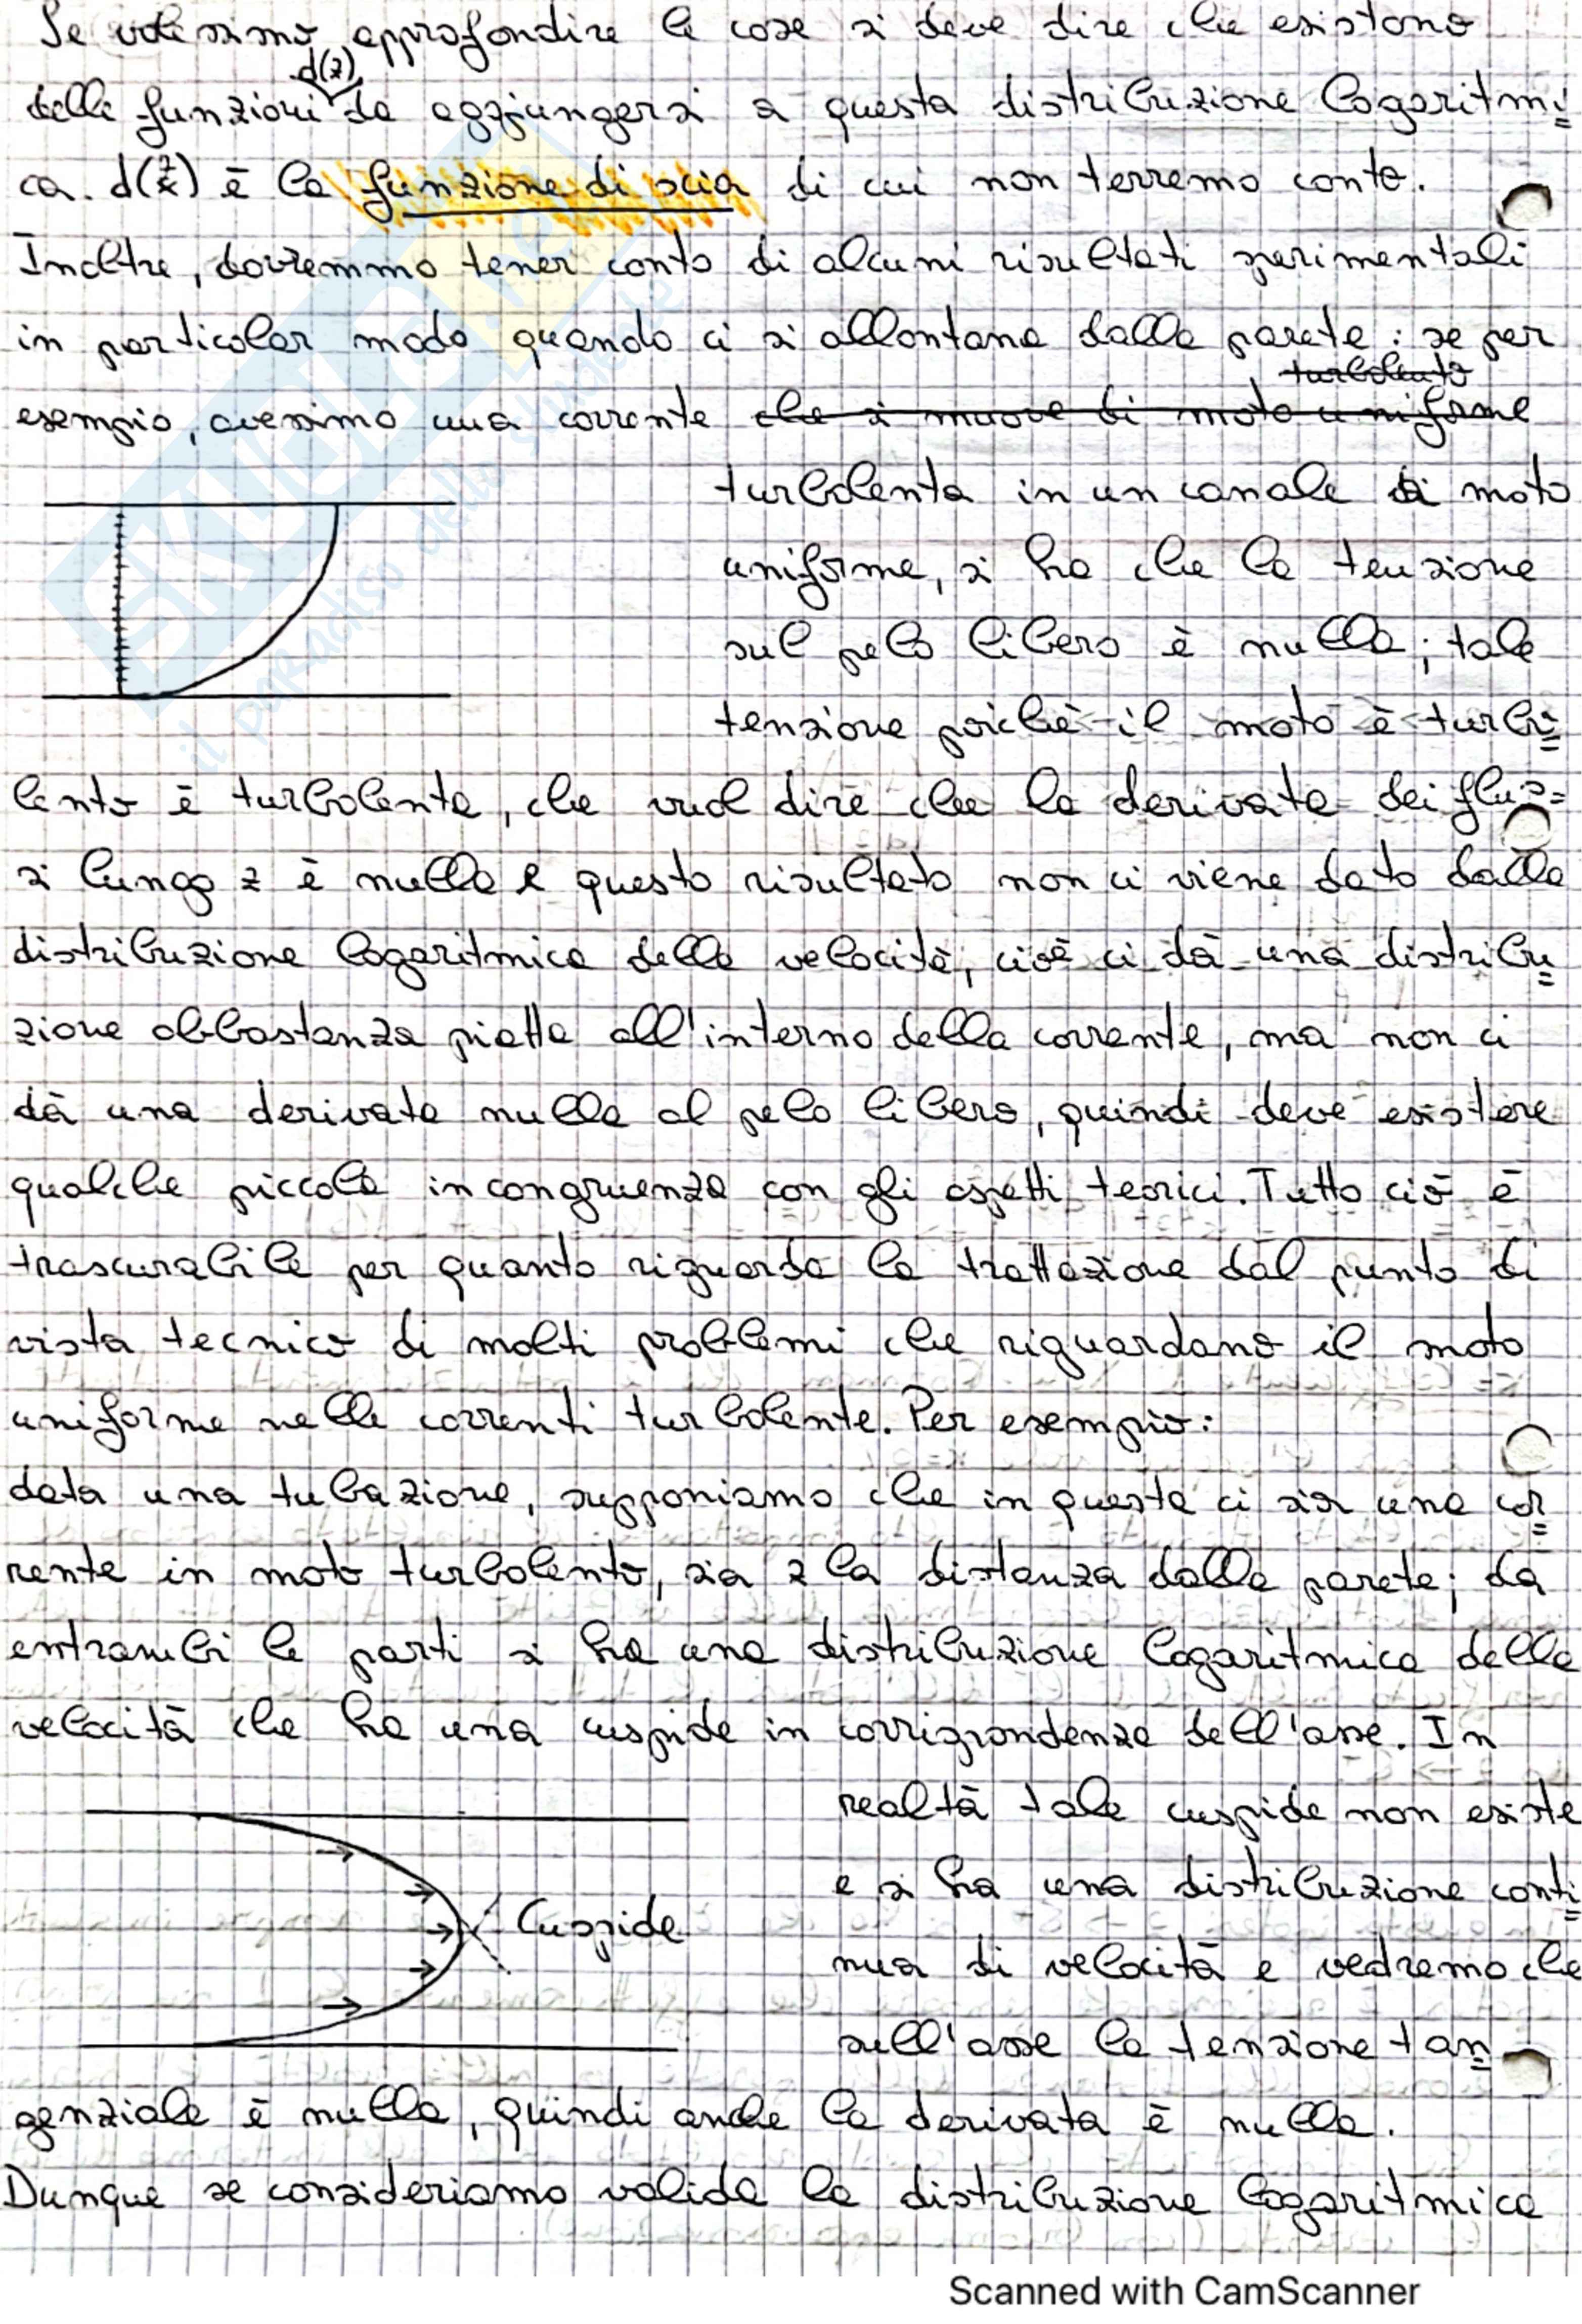 Se volessimo approfondire le cose si deve dire che esistono
d(z)
delle funzioni da aggiungersi a questa distribuzione logaritmi=
ca. d(z/k) è la funzione di scia di cui non terremo conto.
Inoltre, dovremmo tener conto di alcuni risultati sperimentali
in particolar modo quando ci si allontana dalla parete: se per
turbolento
esempio, avessimo una corrente che si muove di moto uniforme
turbolenta in un canale di moto
uniforme, si ha che la tensione
sul pelo libero è nulla; tale
tensione poichè il moto è turbo=
lento è turbolenta, che vuol dire che la derivata dei flus=
si lungo z è nulla e questo risultato non ci viene dato dalla
distribuzione logaritmica della velocità, cioè ci dà una distribu=
zione abbastanza piatta all'interno della corrente, ma non ci
dà una derivata nulla al pelo libero, quindi deve esistere
qualche piccola incongruenza con gli aspetti teorici. Tutto ciò è
trascurabile per quanto riguarda la trattazione dal punto di
vista tecnico di molti problemi che riguardano il moto
uniforme nelle correnti turbolente. Per esempio:
data una tubazione, supponiamo che in questa ci sia una cor=
rente in moto turbolento, sia z la distanza dalla parete; da
entrambi le parti si ha una distribuzione logaritmica della
velocità che ha una cuspide in corrispondenza dell'asse. In
realtà tale cuspide non esiste
e si ha una distribuzione conti=
Cuspide
nua di velocità e vedremo che
sull'asse la tensione tan=
genziale è nulla, quindi anche la derivata è nulla.
Dunque se consideriamo valida la distribuzione logaritmica
Scanned with CamScanner
SKUOLA.net
il paradiso dello studente